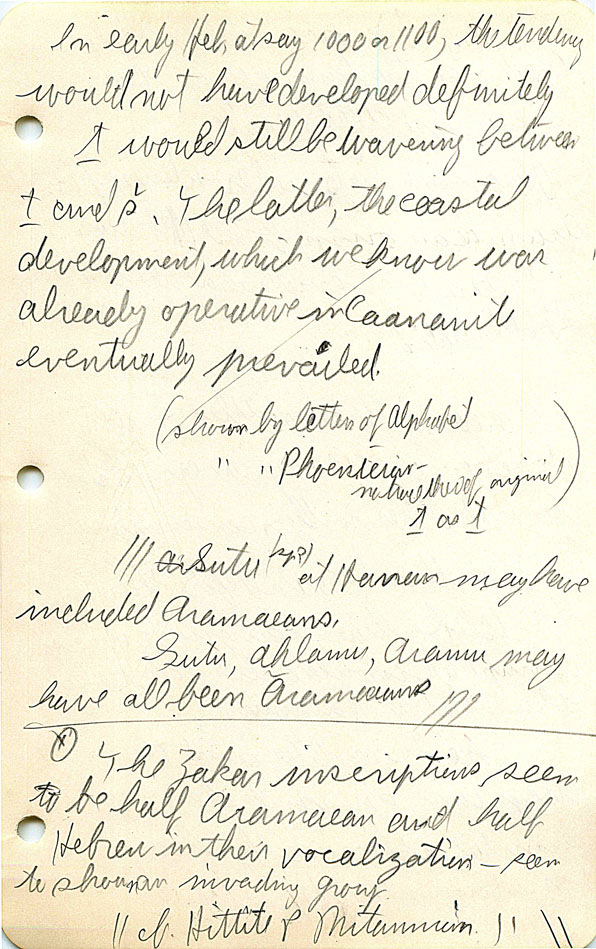 In early Heb, at say 1000 or 1100, the tendency
would not have developed definitely
t would still be wavering between
t and š. The latter, the coastal
development, which we know was
already operative in Caananit
eventually prevailed.
(shown by letters of Alphabet
" " Phoenician
of original)
t as t
/// Sutu (sp?) at Harran may have
included Aramaeans.
Sutu, Ahlamu, Aramu may
have all been Aramaeans ///
(x) The Zakar inscriptions seem
to be half Aramaean and half
Hebrew in their vocalization – seem
to show an invading group
// cf. Hittite & Mitannian. // \\